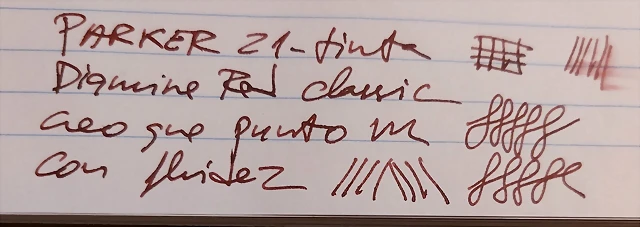 PARKER 21-tinta
Diamine Red classic
creo que punto M
con fluidez